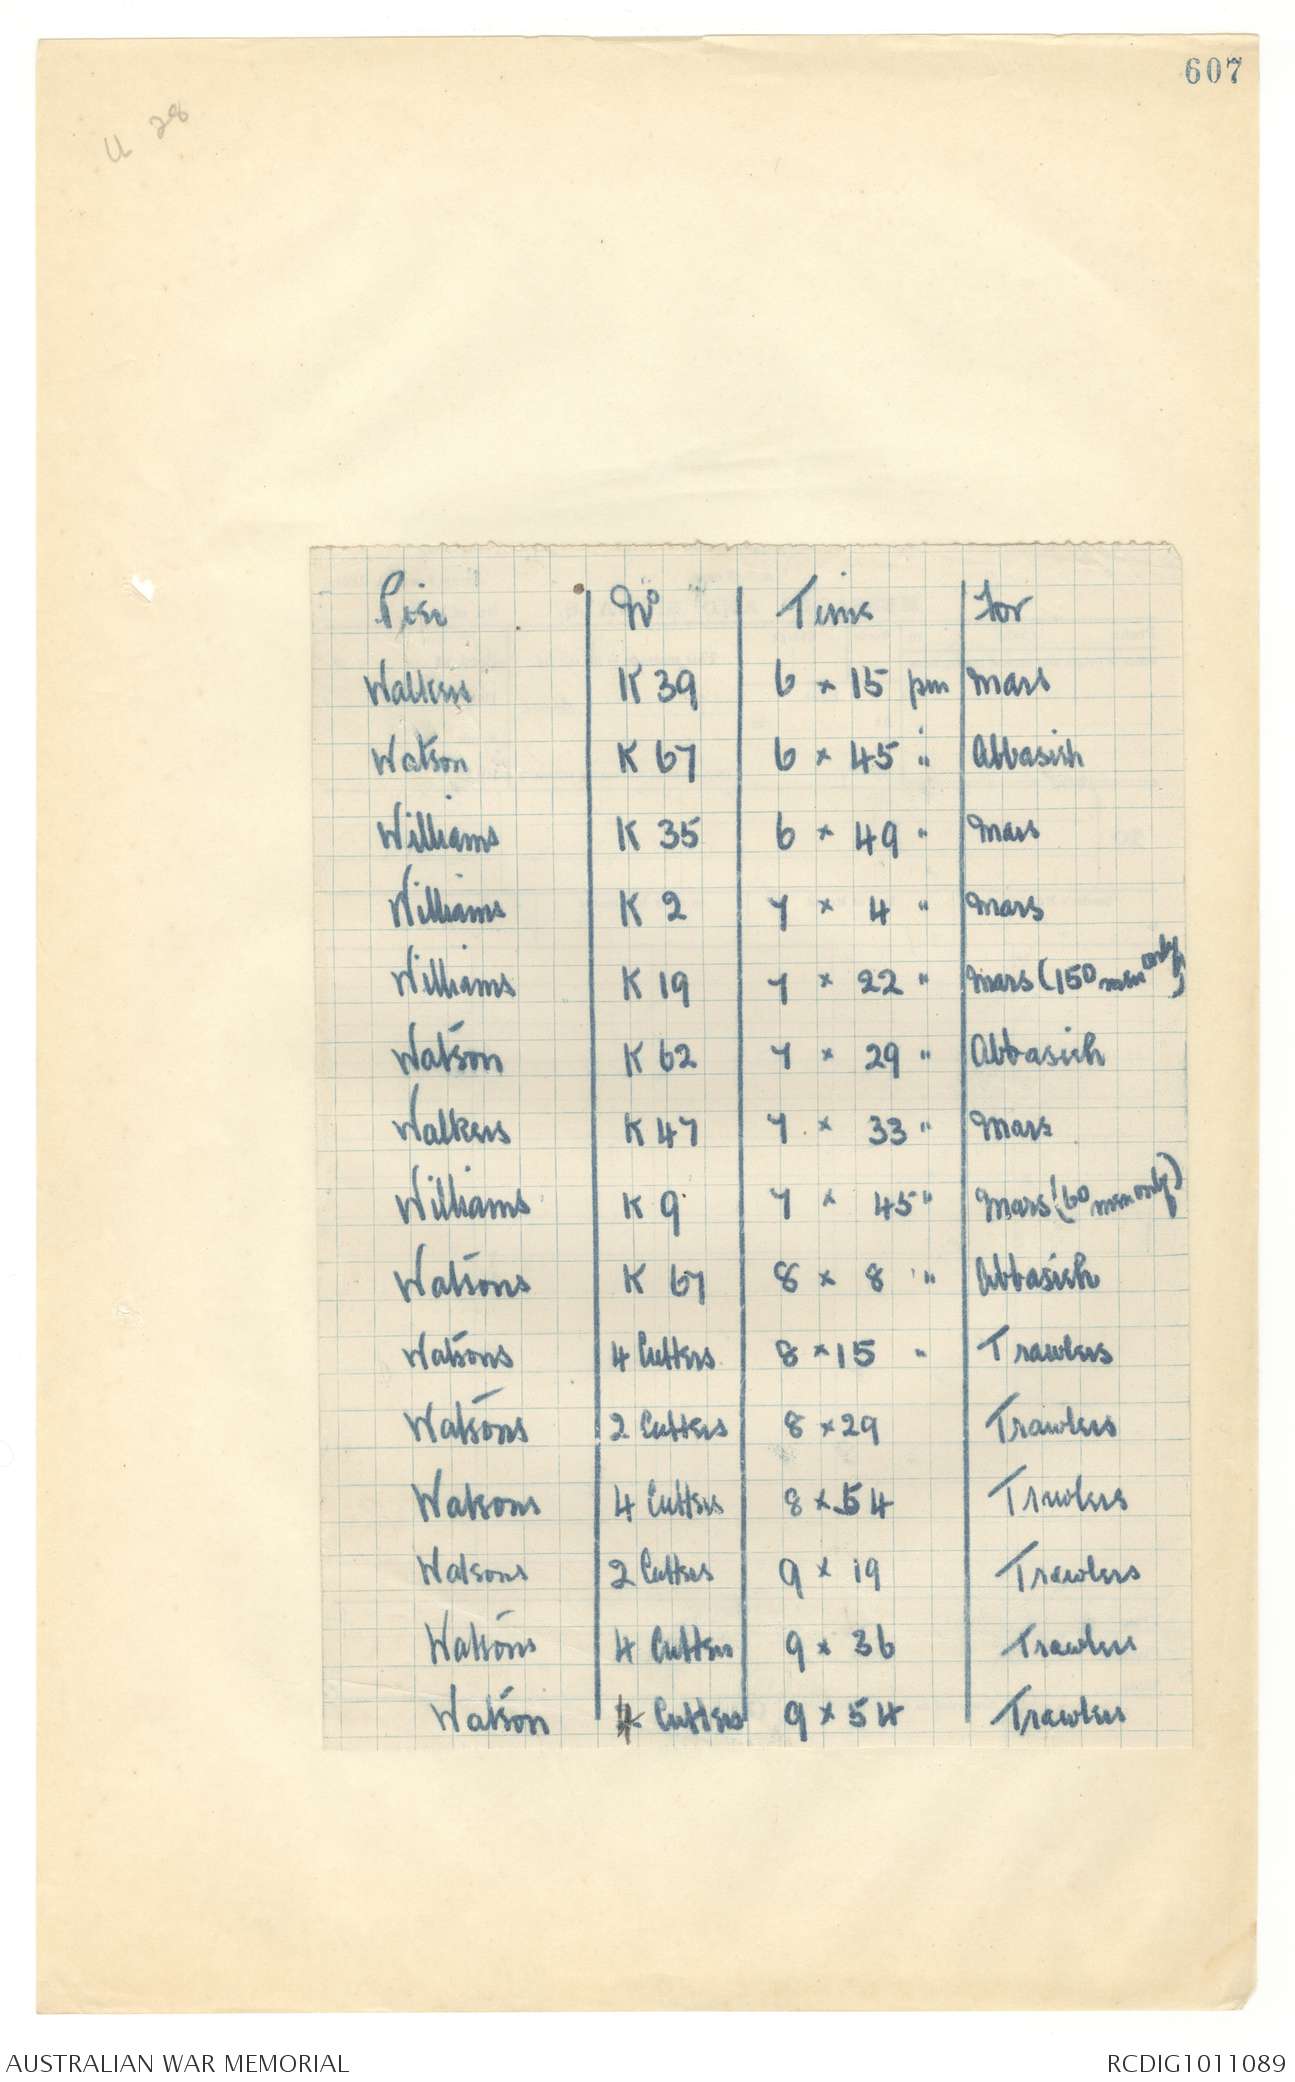 607
U 28
Pier Nº Time For
Walkers K 39 6 x 15 pm Mars
Watson K 67 6 x 45 " Abbasieh
Williams K 35 6 x 49 " Mars
Williams K 2 7 x 4 " Mars
Williams K 19 7 x 22 " Mars (150 men only)
Watson K 62 7 x 29 " Abbasieh
Walkers K 47 7 x 33 " Mars
Williams K 9 7 x 45 " Mars (60 men only)
Watsons K 67 8 x 8 " Abbasieh
Watsons 4 Cutters 8 x 15 " Trawlers
Watsons 2 Cutters 8 x 29 Trawlers
Watsons 4 Cutters 8 x 54 Trawlers
Watsons 2 Cutters 9 x 19 Trawlers
Watsons 4 Cutters 9 x 36 Trawlers
Watson 4 Cutters 9 x 54 Trawlers
AUSTRALIAN WAR MEMORIAL RCDIG1011089